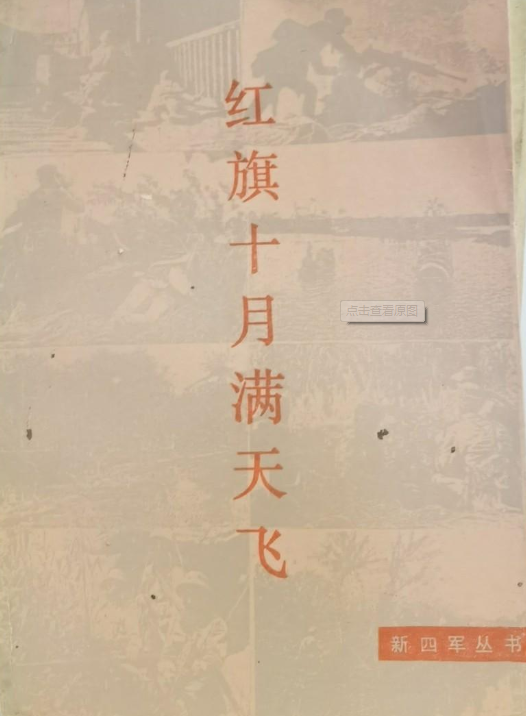 红旗十月满天飞
点击查看原图
新四军丛书